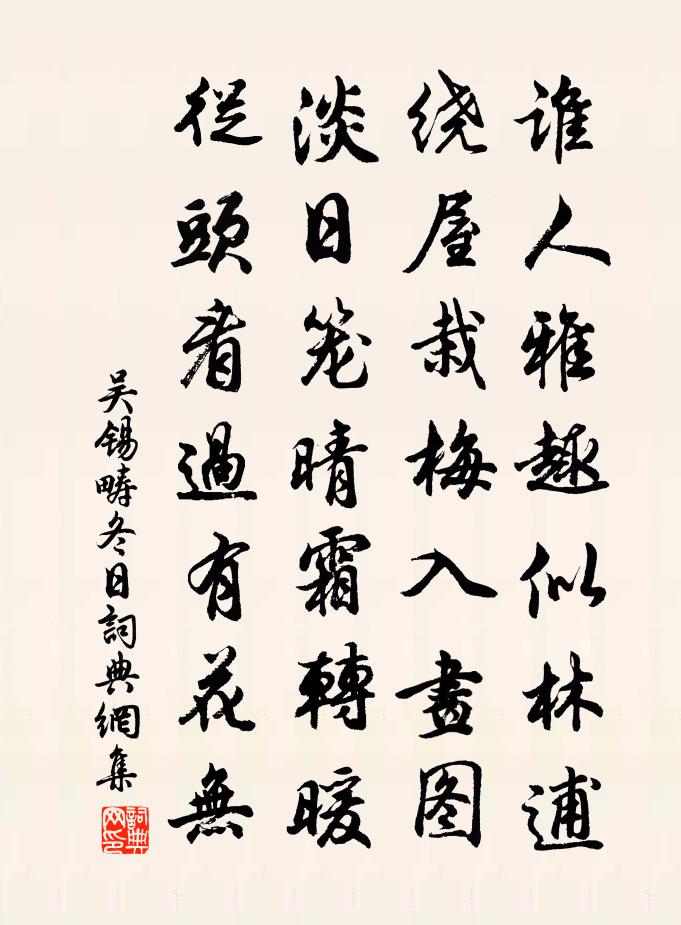 谁人雅趣似林逋
绕屋栽梅入畫图
淡日笼晴霜轉暖
從頭看過有花無
吴锡畴冬日詞典網集
詞典网印